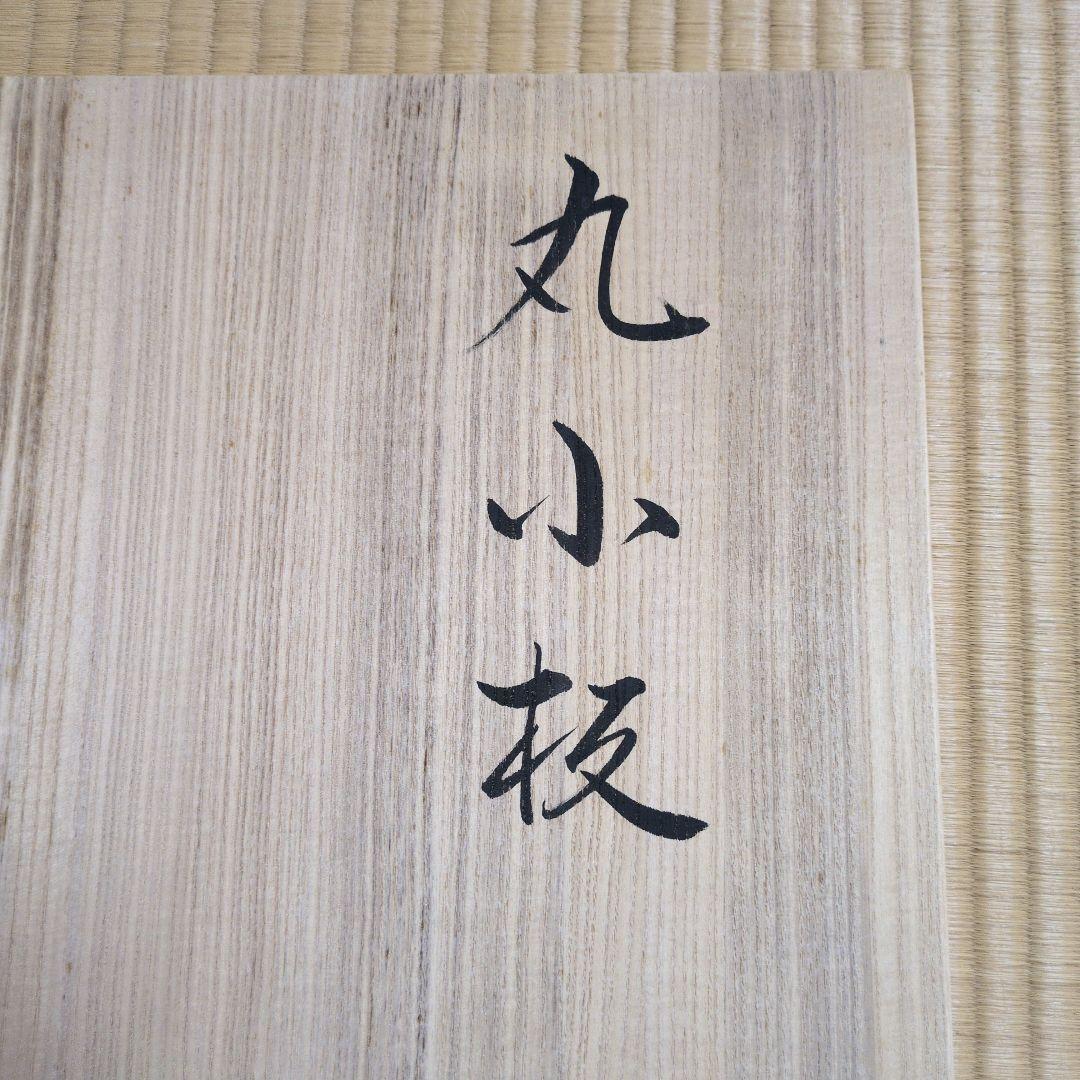 丸小板